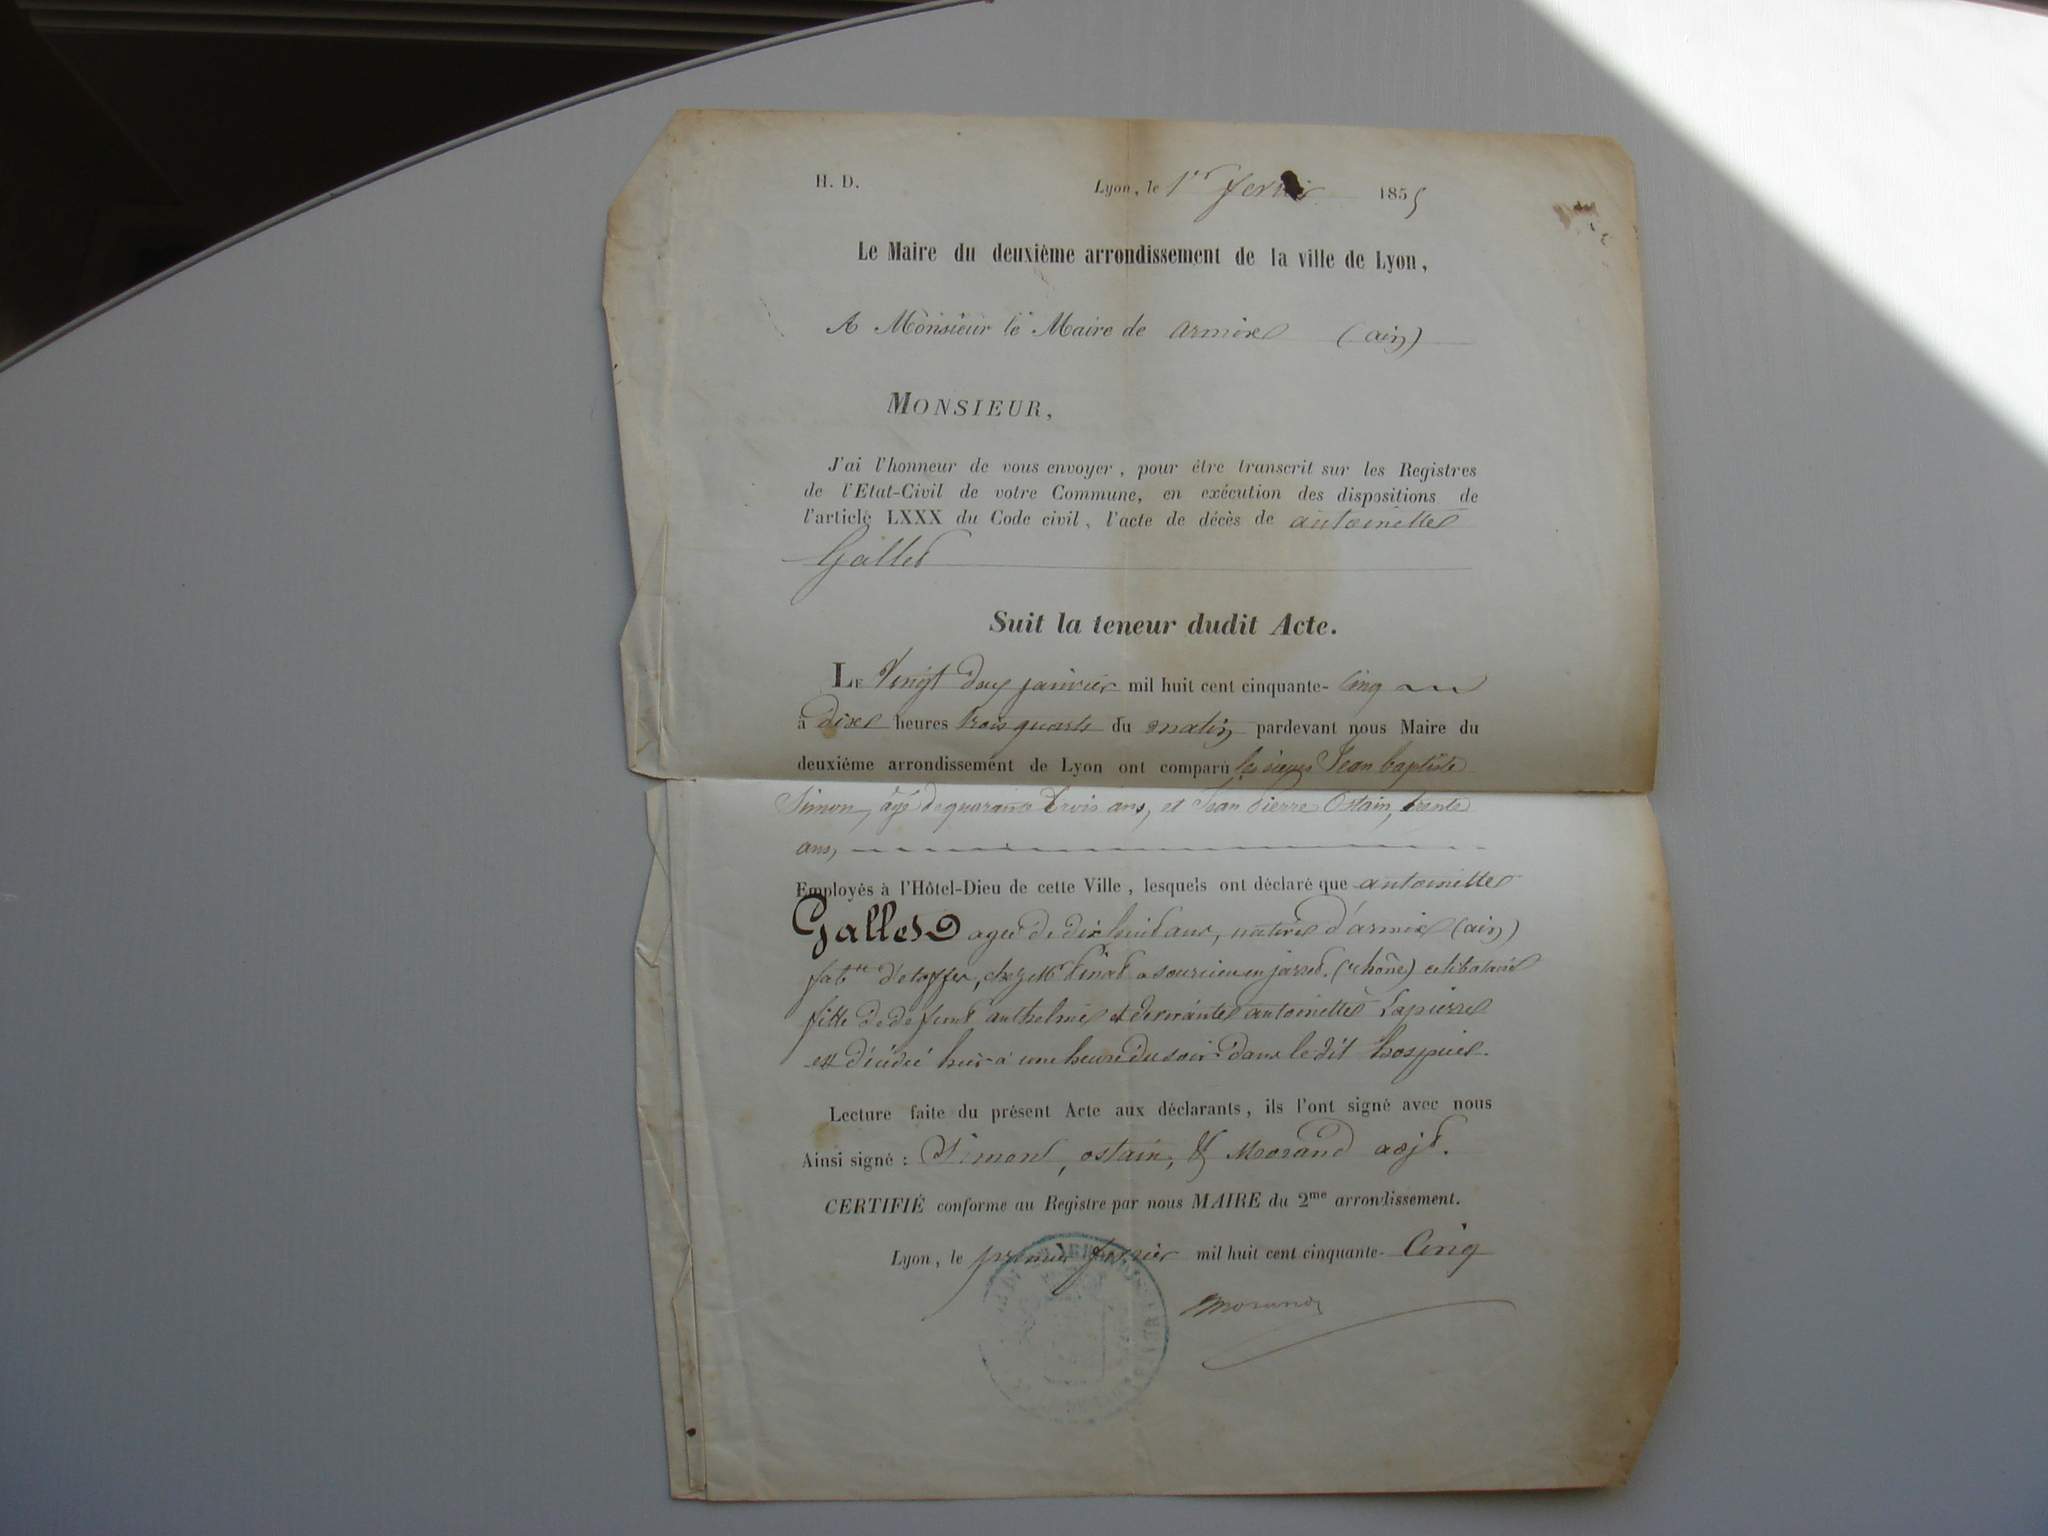 H. D.
Lyon, le 1er fevrier 1855
Le Maire du deuxième arrondissement de la ville de Lyon,
A Monsieur le Maire de armix (ain)
MONSIEUR,
J'ai l'honneur de vous envoyer, pour être transcrit sur les Registres
de l'Etat-Civil de votre Commune, en exécution des dispositions de
l'article LXXX du Code civil, l'acte de décès de antoinette
Gallet
Suit la teneur dudit Acte.
LE Vingt deux janvier mil huit cent cinquante- cinq
à dix heures trois quarts du matin pardevant nous Maire du
deuxième arrondissement de Lyon ont comparu les sieurs Jean baptiste
Simon, âgé de quarante trois ans, et Jean Pierre Ostain, trente
ans,
Employés à l'Hôtel-Dieu de cette Ville, lesquels ont déclaré que antoinette
Gallet agée de dix huit ans, native d'armix (ain)
fabte d'etoffes, chez Mr Pinat a sourcieu en jarret. (rhône) celibataire
fille de defunt anthelme et de vivante antoinette Lapierre
est décédée hier à une heure du soir dans le dit hospice.
Lecture faite du présent Acte aux déclarants, ils l'ont signé avec nous
Ainsi signé : Simont, ostain, & Morand adjt.
CERTIFIÉ conforme au Registre par nous MAIRE du 2me arrondissement.
Lyon, le premier fevrier mil huit cent cinquante- Cinq
Morand